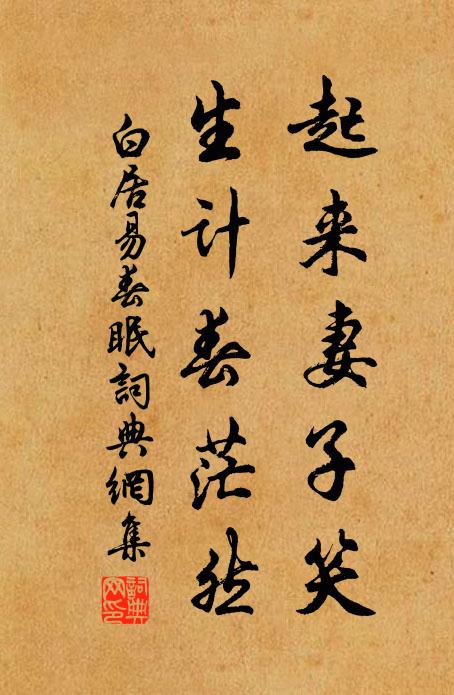 起来妻子笑
生计春茫然
白居易春眠詞典網集
詞典网印